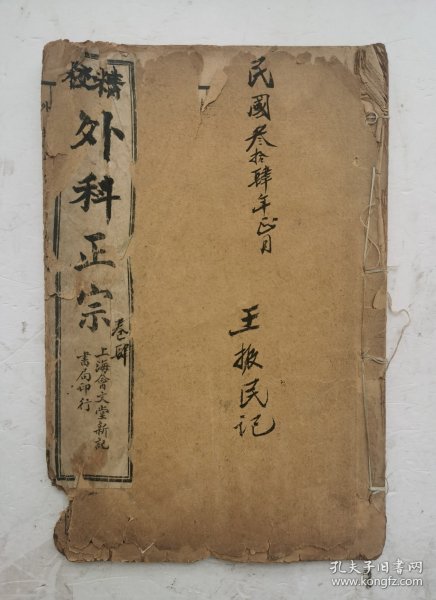 民國叁拾肆年正月
王振民记
精校
外科正宗
卷肆
上海會文堂新記
書局印行
孔夫子旧书网
www.kongfz.com